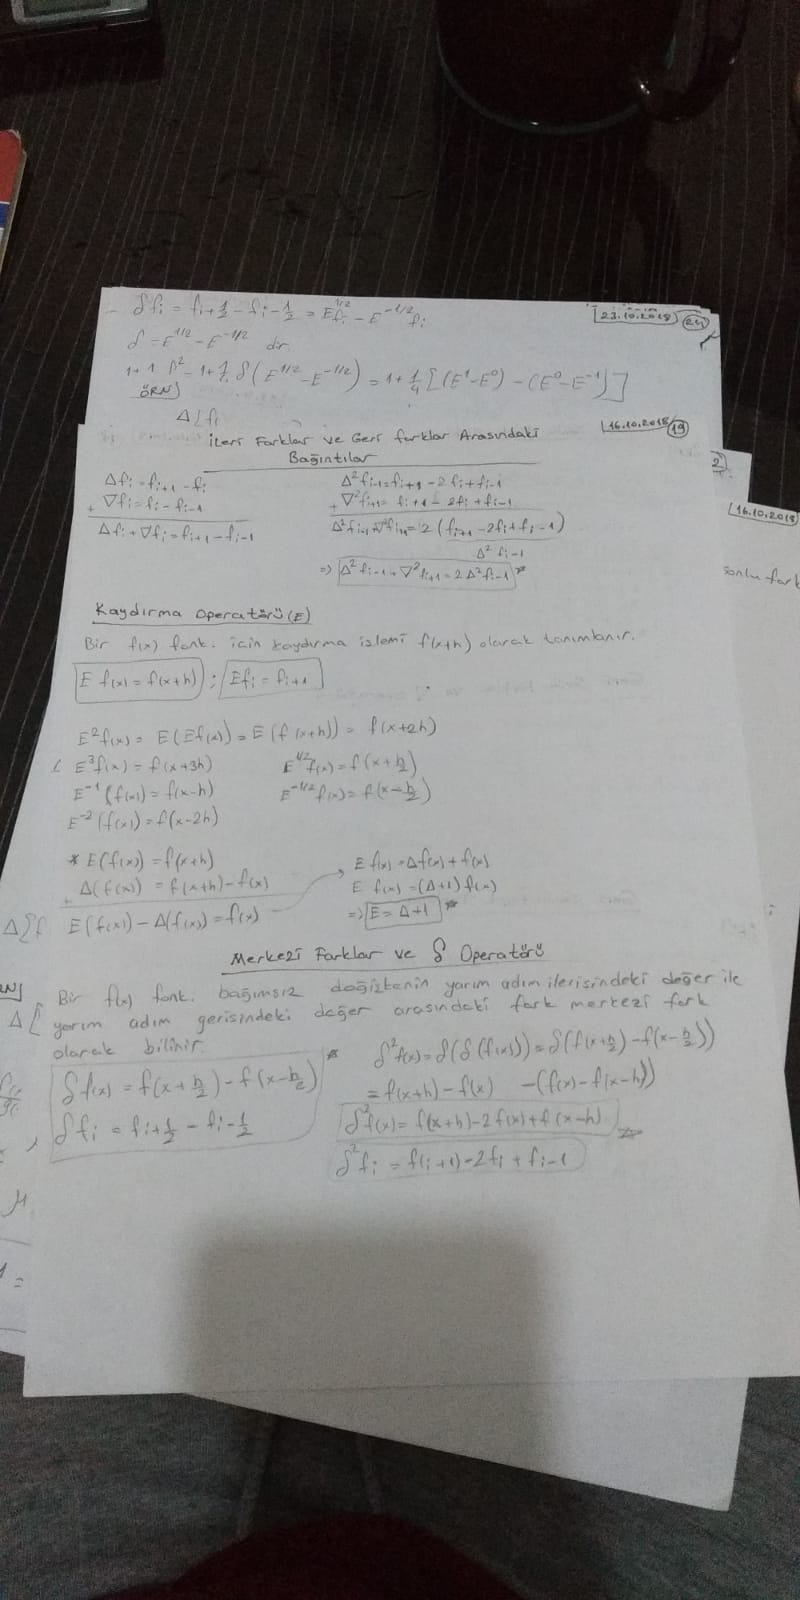 δfi = fi+1/2 - fi-1/2 = E^1/2 fi - E^-1/2 fi
23.10.2018 24
δ = E^1/2 - E^-1/2 dir
δ^2 = 1+1/4 δ(E^1/2 - E^-1/2) = 1+1/4 [(E^1-E^0) - (E^0-E^-1)]
ÖRN)
Δ fi
16.10.2018 19
İleri Farklar ve Geri farklar Arasındaki
Bağıntılar
Δfi = fi+1 - fi
+ ∇fi = fi - fi-1
Δfi + ∇fi = fi+1 - fi-1
Δ^2 fi-1 = fi+1 - 2fi + fi-1
+ ∇^2 fi+1 = fi+1 - 2fi + fi-1
Δ^2 fi-1 + ∇^2 fi+1 = 2(fi+1 - 2fi + fi-1)
Δ^2 fi-1
=> Δ^2 fi-1 + ∇^2 fi+1 = 2Δ^2 fi-1 *
2
16.10.2018
sonlu fark
Kaydırma Operatörü (E)
Bir f(x) fonk. için kaydırma işlemi f(x+h) olarak tanımlanır.
E f(x) = f(x+h) ; Efi = fi+1
E^2 f(x) = E(Ef(x)) = E(f(x+h)) = f(x+2h)
E^3 f(x) = f(x+3h)
E^-1 (f(x)) = f(x-h)
E^-2 (f(x)) = f(x-2h)
E^1/2 f(x) = f(x+h/2)
E^-1/2 f(x) = f(x-h/2)
* E(f(x)) = f(x+h)
Δ(f(x)) = f(x+h) - f(x)
E(f(x)) - Δ(f(x)) = f(x)
E f(x) = Δf(x) + f(x)
E f(x) = (Δ+1) f(x)
=> E = Δ+1 *
Merkezi Farklar ve δ Operatörü
Bir f(x) fonk. bağımsız değişkenin yarım adım ilerisindeki değer ile
yarım adım gerisindeki değer arasındaki fark merkezi fark
olarak bilinir.
δf(x) = f(x+h/2) - f(x-h/2) *
δfi = fi+1/2 - fi-1/2
δ^2 f(x) = δ(δ(f(x))) = δ(f(x+h/2) - f(x-h/2))
= f(x+h) - f(x) - (f(x) - f(x-h))
δ^2 f(x) = f(x+h) - 2f(x) + f(x-h)
δ^2 fi = f(i+1) - 2fi + fi-1